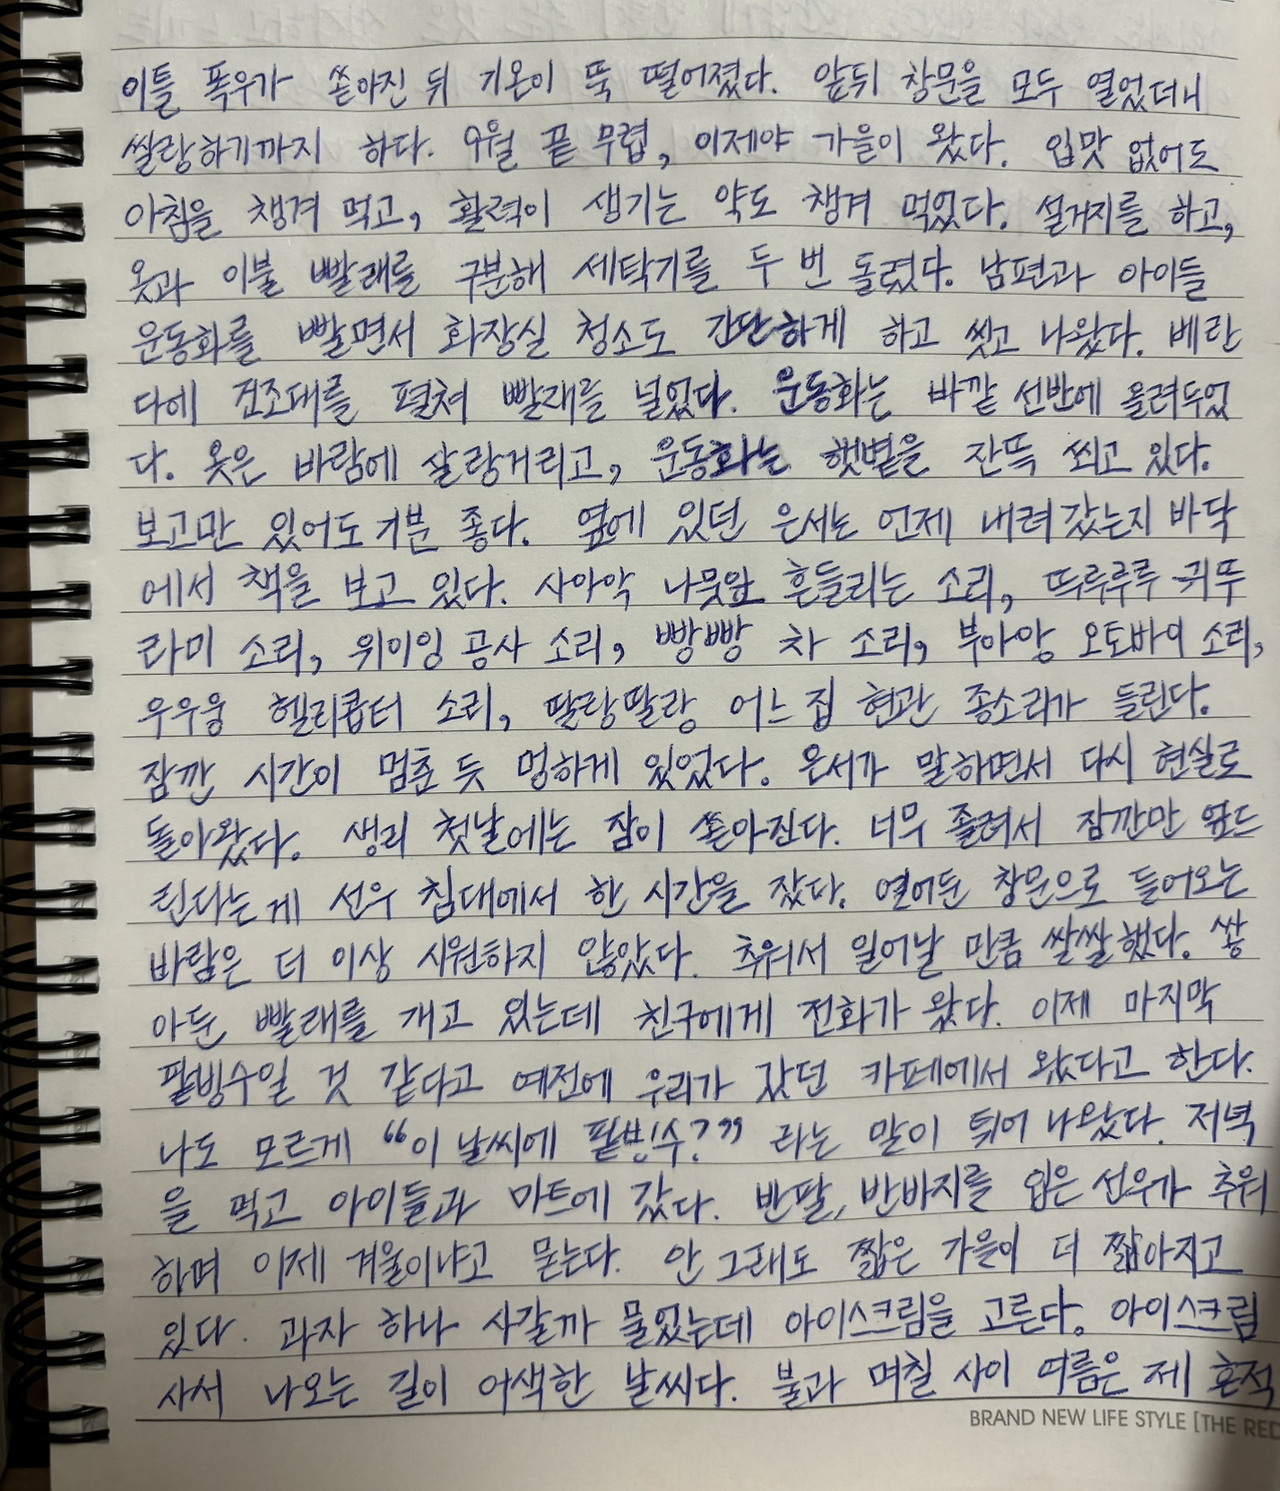 이틀 폭우가 쏟아진 뒤 기온이 뚝 떨어졌다. 앞뒤 창문을 모두 열었더니
쌀랑하기까지 하다. 9월 끝 무렵, 이제야 가을이 왔다. 입맛 없어도
아침을 챙겨 먹고, 활력이 생기는 약도 챙겨 먹었다. 설거지를 하고,
옷과 이불 빨래를 구분해 세탁기를 두 번 돌렸다. 남편과 아이들
운동화를 빨면서 화장실 청소도 간단하게 하고 씻고 나왔다. 베란
다에 건조대를 펼쳐 빨래를 널었다. 운동화는 바깥 선반에 올려두었
다. 옷은 바람에 살랑거리고, 운동화는 햇볕을 잔뜩 쐬고 있다.
보고만 있어도 기분 좋다. 옆에 있던 은서는 언제 내려갔는지 바닥
에서 책을 보고 있다. 사아악 나뭇잎 흔들리는 소리, 뜨루루루 귀뚜
라미 소리, 위이잉 공사 소리, 빵빵 차 소리, 부아앙 오토바이 소리,
우우웅 헬리콥터 소리, 딸랑딸랑 어느 집 현관 종소리가 들린다.
잠깐 시간이 멈춘 듯 멍하게 있었다. 은서가 말하면서 다시 현실로
돌아왔다. 생리 첫날에는 잠이 쏟아진다. 너무 졸려서 잠깐만 엎드
린다는게 선우 침대에서 한 시간을 잤다. 열어둔 창문으로 들어오는
바람은 더 이상 시원하지 않았다. 추워서 일어날 만큼 쌀쌀했다. 쌓
아둔 빨래를 개고 있는데 친구에게 전화가 왔다. 이제 마지막
팥빙수일 것 같다고 예전에 우리가 갔던 카페에서 왔다고 한다.
나도 모르게 “이 날씨에 팥빙수?” 라는 말이 튀어 나왔다. 저녁
을 먹고 아이들과 마트에 갔다. 반팔, 반바지를 입은 선우가 추워
하며 이제 겨울이냐고 묻는다. 안 그래도 짧은 가을이 더 짧아지고
있다. 과자 하나 사갈까 물었는데 아이스크림을 고른다. 아이스크림
사서 나오는 길이 어색한 날씨다. 불과 며칠 사이 여름은 제 흔적
BRAND NEW LIFE STYLE [THE RED